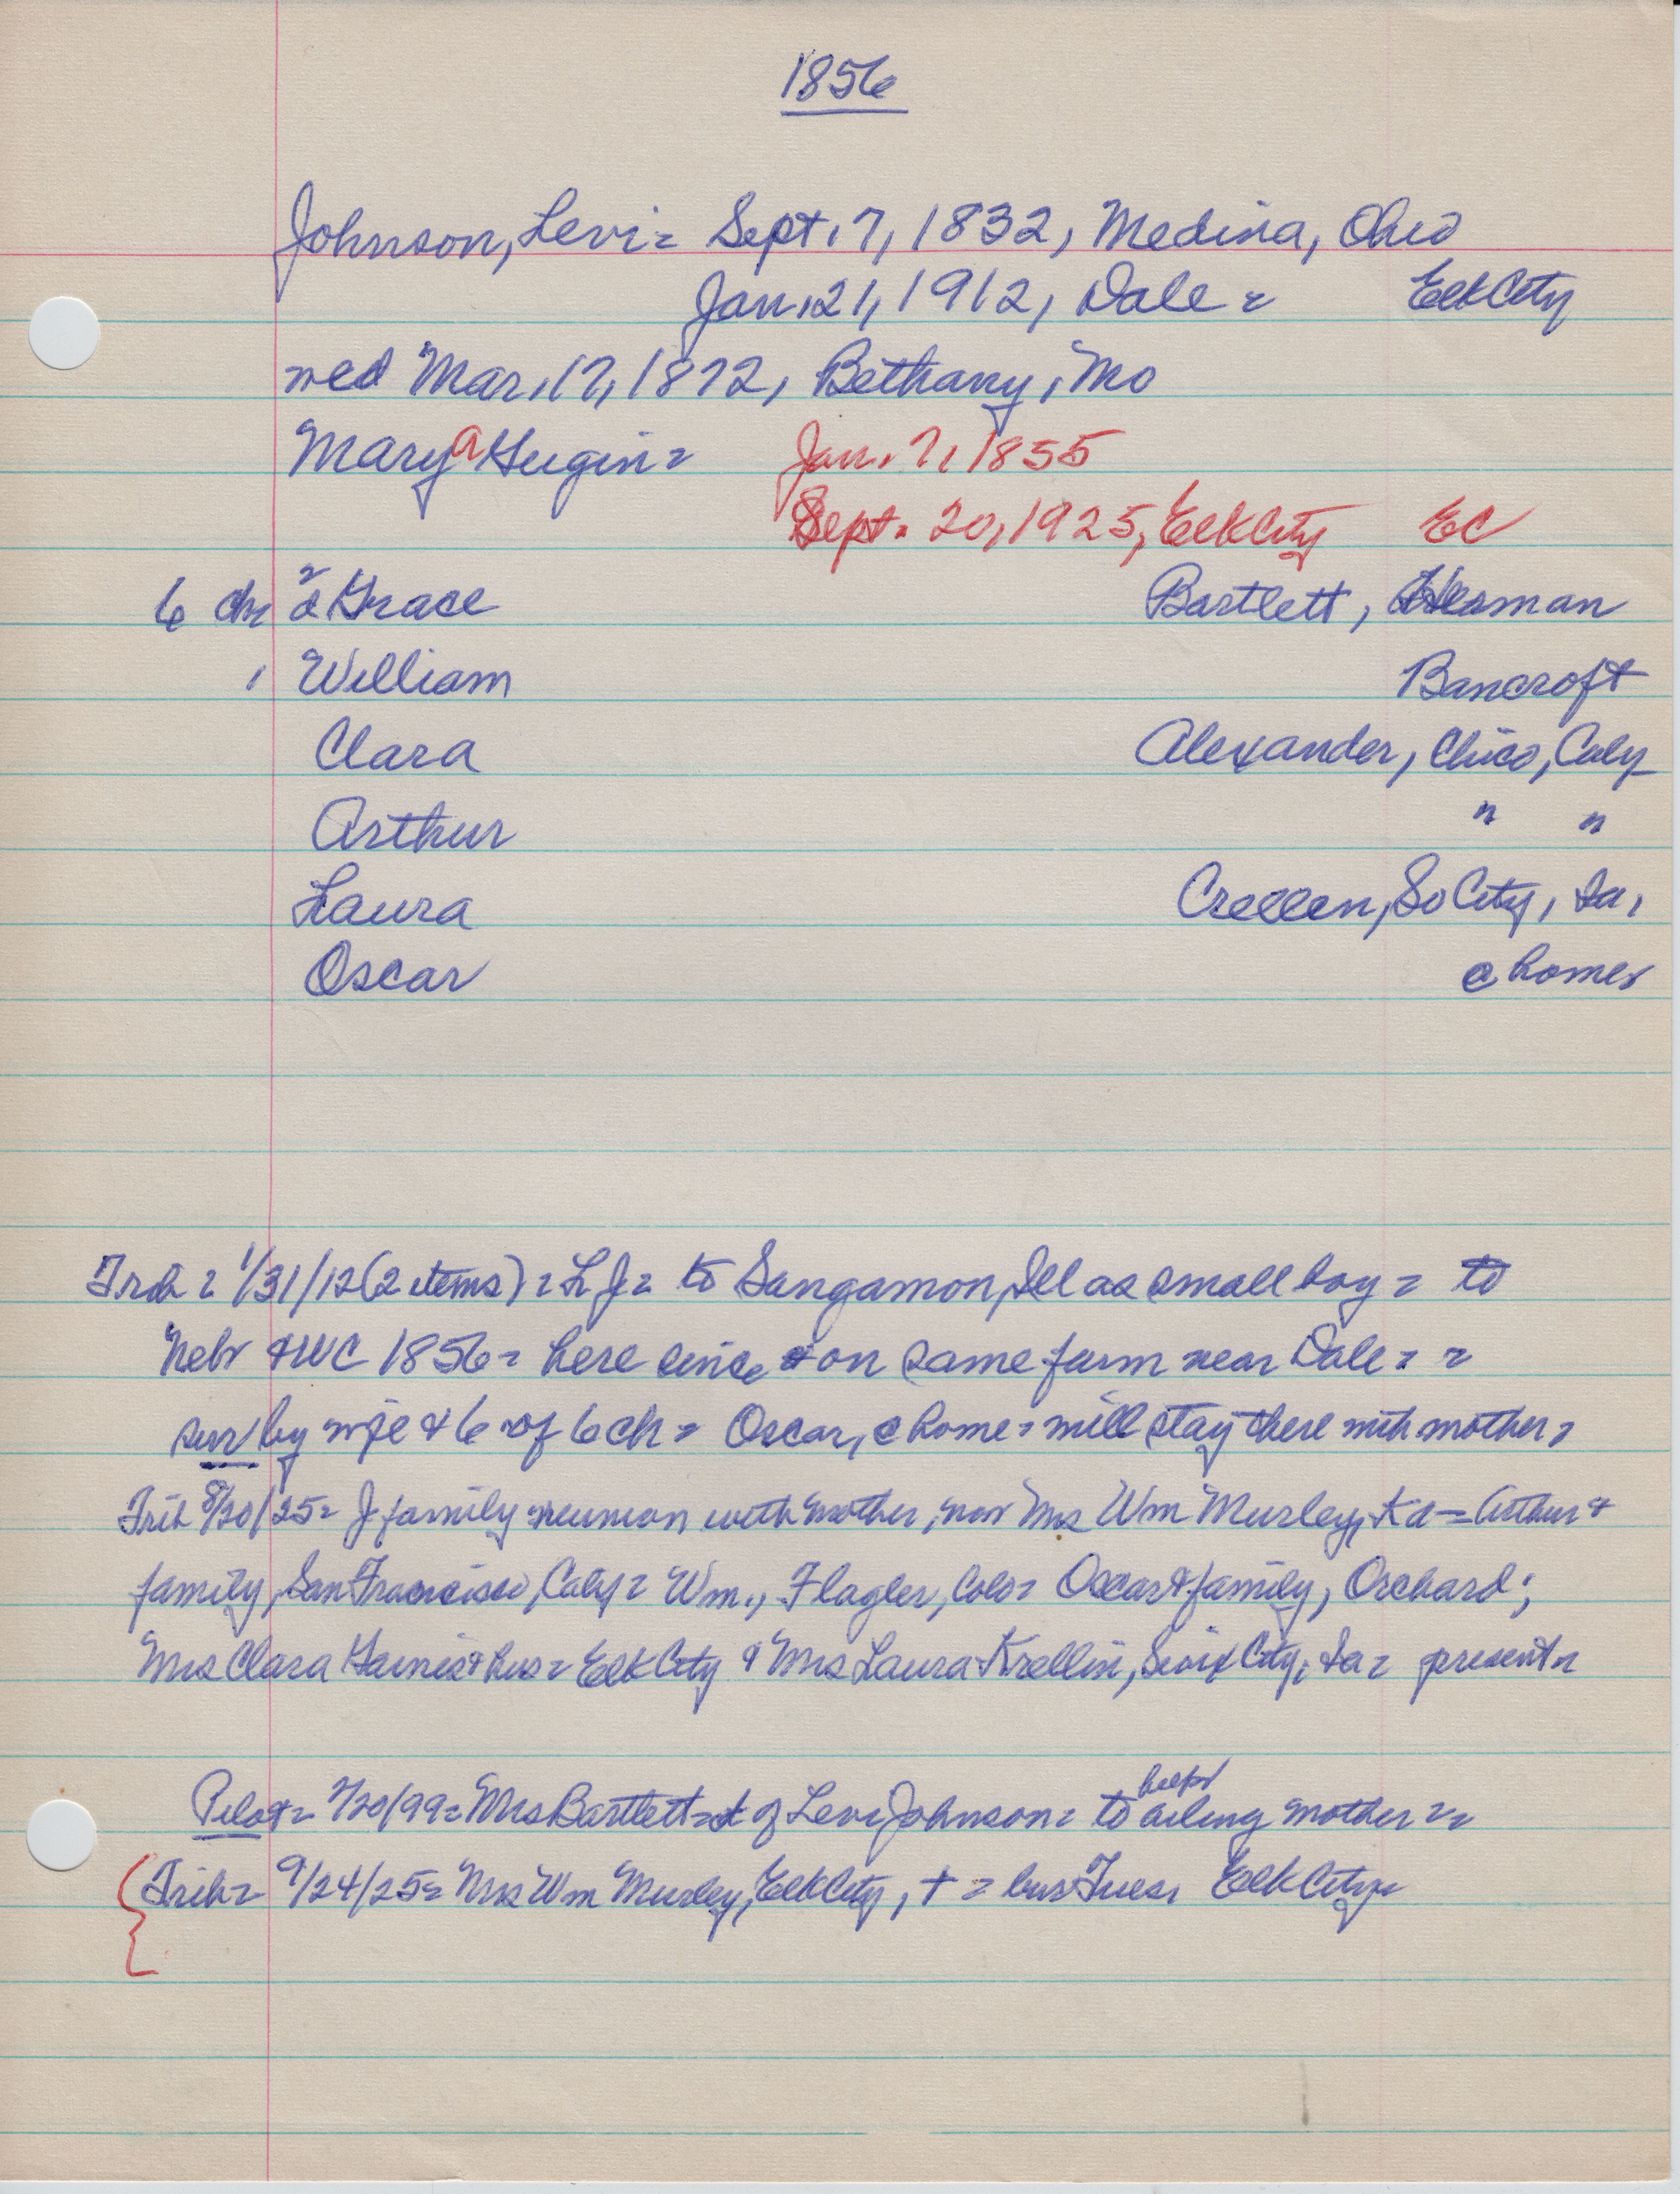 1856
Johnson, Levi = Sept. 7, 1832, Medina, Ohio
Jan. 21, 1912, Dale = Elk City
wed Mar. 17, 1872, Bethany, Mo
Mary A Hugin = Jan. 7, 1855
Sept. 20, 1925, Elk City EC
6 ch 2 Grace Bartlett, Herman
1 William Bancroft
Clara Alexander, Chico, Calif
Arthur " "
Laura Crellen, So City, Ia.
Oscar @ home
Trib = 1/31/12 (2 items) = L J = to Sangamon, Ill as small boy = to
Nebr & WC 1856 = here since & on same farm near Dale = =
sur by wife & 6 of 6 ch = Oscar, @ home = will stay there with mother =
Trib 8/20/25 = J family reunion with mother, now Mrs Wm Murley, = Arthur &
family, San Francisco, Calif = Wm., Flagler, Colo = Oscar & family, Orchard;
Mrs Clara & hus = Elk City & Mrs Laura Krellin, Sioux City, Ia = present =
Pilot = 7/20/99 = Mrs Bartlett = d of Levi Johnson = to help ailing mother = =
Trib = 9/24/25 = Mrs Wm Murley, Elk City, † = bur Tues Elk City =